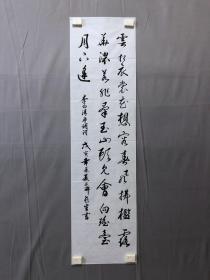 雲想衣裳花想容春風拂檻露
華濃若非群玉山頭見會向瑤臺
月下逢
李白清平調 戊寅 書